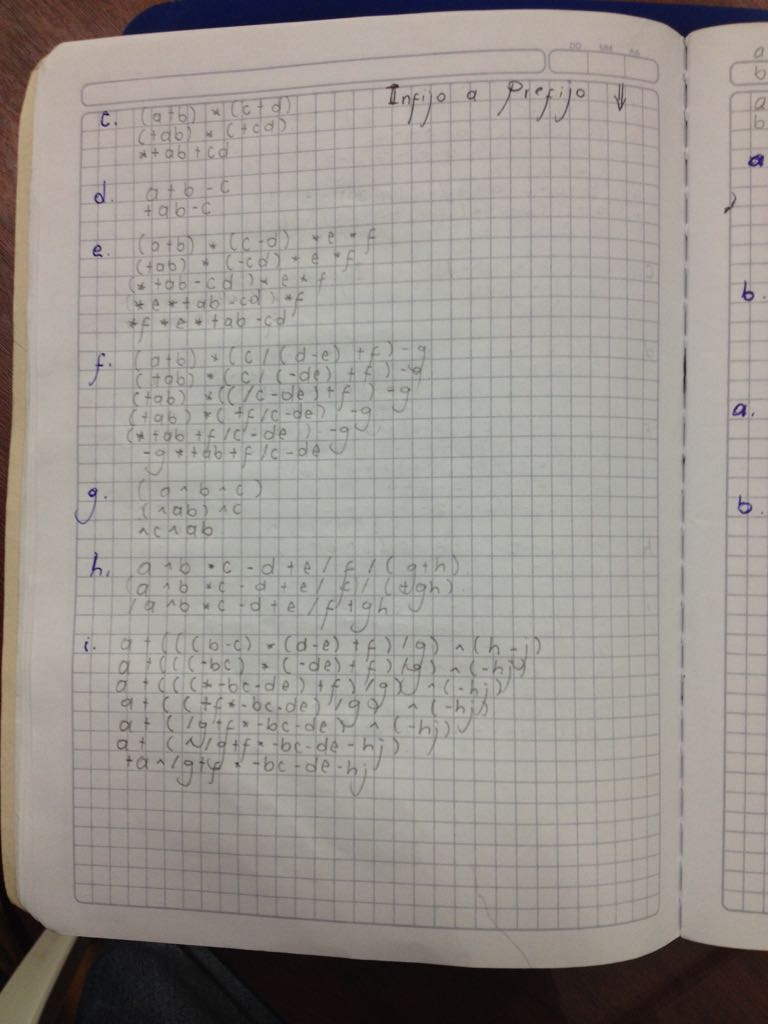 DD MM AA
Infijo a Prefijo ↓
c. (a+b) * (c+d)
(+ab) * (+cd)
*+ab+cd
d. a+b-c
+ab-c
e. (a+b) * (c-d) *e*f
(+ab) * (-cd) * e *f
(*+ab-cd) * e * f
(*e*+ab-cd) *f
*f*e*+ab-cd
f. (a+b) * (c/(d-e) +f) -g
(+ab) * (c/(-de) +f) -g
(+ab) * ((/c-de)+f) -g
(+ab) * (+f/c-de) -g
(*+ab+f/c-de) -g
-g*+ab+f/c-de
g. (a^b^c)
(^ab)^c
^c^ab
h. a^b *c -d +e / f / (g+h)
(a^b *c -d +e / f) / (+gh)
/a^b *c -d+e/f+gh
i. a+(((b-c) *(d-e) +f) /g) ^ (h-j)
a+(((-bc) * (-de) +f) /g) ^ (-hj)
a+(((*-bc-de) +f) /g) ^ (-hj)
a+((+f*-bc-de) /g) ^ (-hj)
a+ (/g+f*-bc-de) ^ (-hj)
a+ (^/g+f*-bc-de-hj)
+a^/g+f*-bc-de-hj
a
b
a
b
a
b.
a.
b.